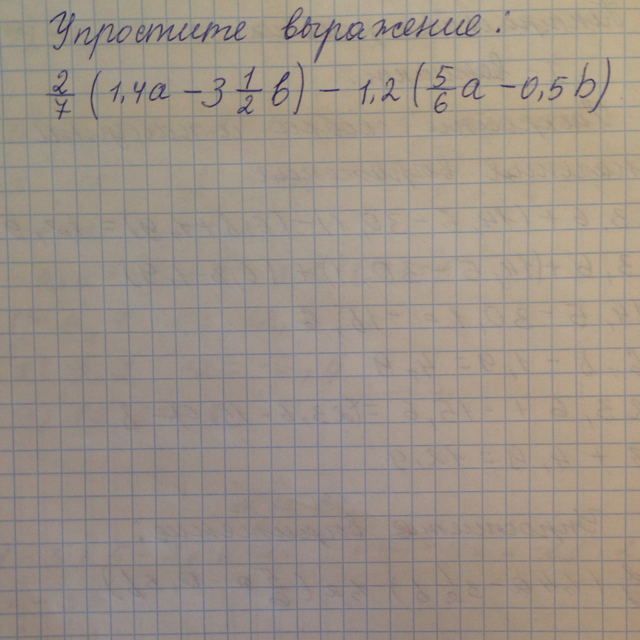 Упростите выражение:
2/7 (1,4a - 3 1/2 b) - 1,2 (5/6 a - 0,5 b)